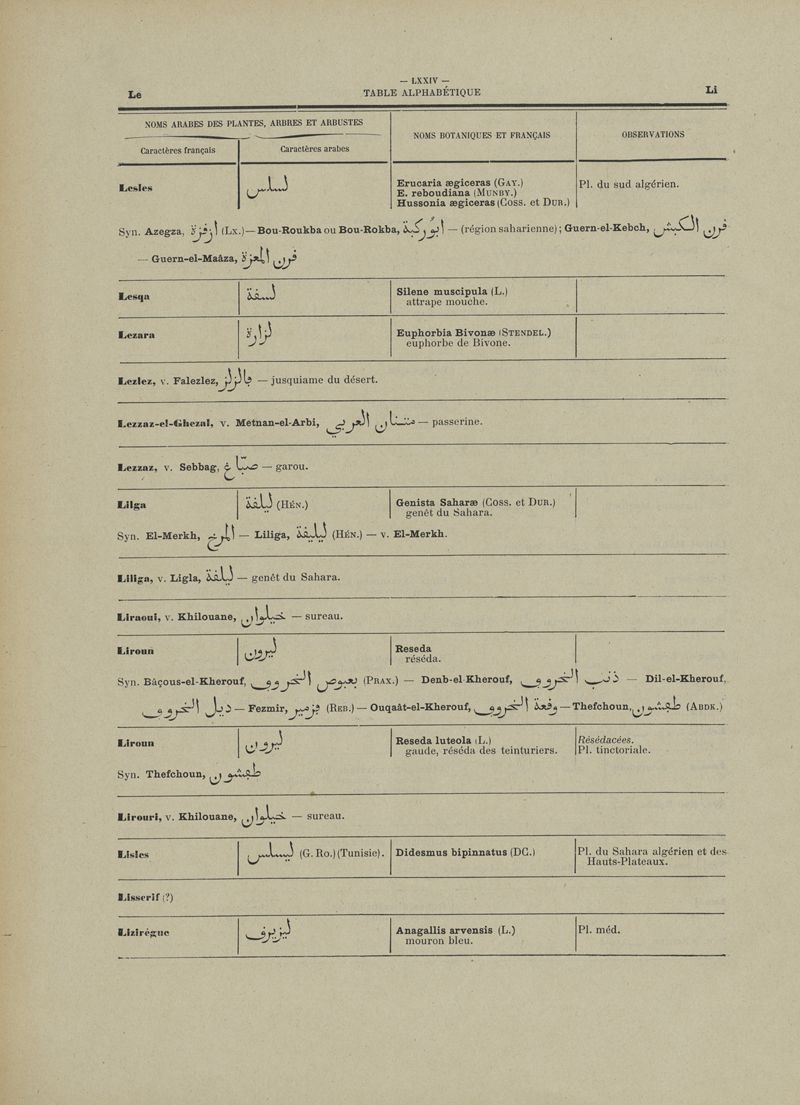 — LXXIV —
Le
TABLE ALPHABÉTIQUE
Li
NOMS ARABES DES PLANTES, ARBRES ET ARBUSTES
NOMS BOTANIQUES ET FRANÇAIS
OBSERVATIONS
Caractères français
Caractères arabes
Lesles
لسلس
Erucaria ægiceras (GAY.)
E. reboudiana (MUNBY.)
Hussonia ægiceras (COSS. et DUR.)
Pl. du sud algérien.
Syn. Azegza, (LX.) — Bou-Roukba ou Bou-Rokba, — (région saharienne) ; Guern-el-Kebch, فرن الكبش
— Guern-el-Maâza, فرن المعزة
Lesqa
لسفة
Silene muscipula (L.)
attrape mouche.
Lezara
لزارة
Euphorbia Bivonæ (STENDEL.)
euphorbe de Bivone.
Lezlez, v. Falezlez, — jusquiame du désert.
Lezzaz-el-Ghezal, v. Metnan-el-Arbi, متنان العربي — passerine.
Lezzaz, v. Sebbag, صبّاغ — garou.
Lilga
ليلفة (HÉN.)
Genista Saharæ (COSS. et DUR.)
genêt du Sahara.
Syn. El-Merkh, المرخ — Liliga, (HÉN.) — v. El-Merkh.
Liliga, v. Ligla, — genêt du Sahara.
Liraoui, v. Khilouane, خيلوان — sureau.
Liroun
ليرون
Reseda
réséda.
Syn. Bâçous-el-Kherouf, بعصوص الخروف (PRAX.) — Denb-el Kherouf, ذنب الخروف — Dil-el-Kherouf,
ذيل الخروف — Fezmir, فزمير (REB.) — Ouqaât-el-Kherouf, وفعة الخروف — Thefchoun, طفشون (ABDK.)
Liroun
ليرون
Reseda luteola (L.)
gaude, réséda des teinturiers.
Résédacées.
Pl. tinctoriale.
Syn. Thefchoun, طفشون
Lirouri, v. Khilouane, خيلوان — sureau.
Lisles
ليسلس (G. RO.) (Tunisie).
Didesmus bipinnatus (DC.)
Pl. du Sahara algérien et des
Hauts-Plateaux.
Lisserif (?)
Lizirégue
ليزيرف
Anagallis arvensis (L.)
mouron bleu.
Pl. méd.